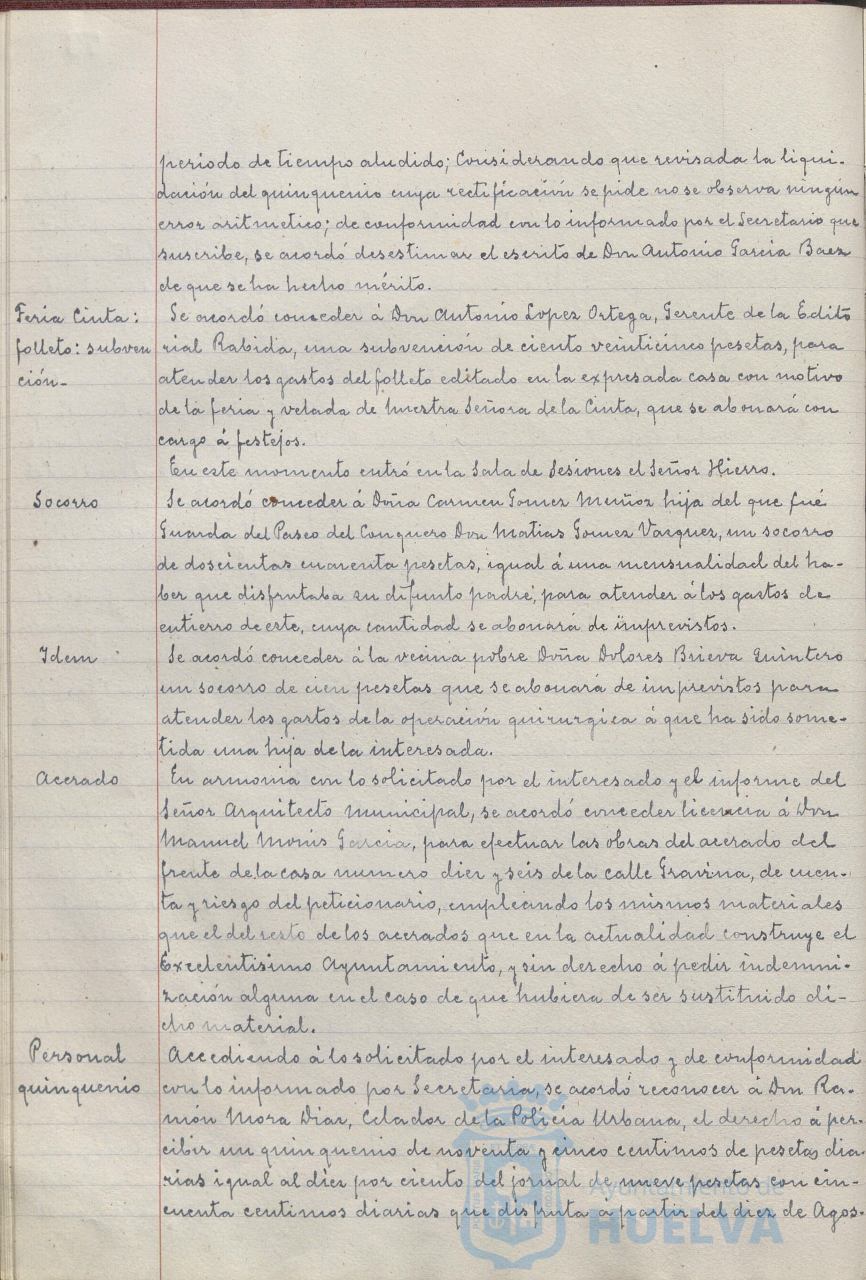 periodo de tiempo aludido; Considerando que revisada la liqui-
dación del quinquenio cuya rectificación se pide no se observa ningún
error aritmetico; de conformidad con lo informado por el Secretario que
suscribe, se acordó desestimar el escrito de Don Antonio Garcia Baez
de que se ha hecho mérito.
Feria Cinta:
folleto: subven
ción-
Se acordó conceder á Don Antonio Lopez Ortega, Gerente de la Edito
rial Rabida, una subvención de ciento veinticinco pesetas, para
atender los gastos del folleto editado en la expresada casa con motivo
de la feria y velada de Nuestra Señora de la Cinta, que se abonará con
cargo á festejos.
En este momento entró en la Sala de Sesiones el Señor Hierro.
Socorro
Se acordó conceder á Doña Carmen Gomez Muñoz hija del que fué
Guarda del Paseo del Conquero Don Matias Gomez Vazquez, un socorro
de doscientas cuarenta pesetas, igual á una mensualidad del ha-
ber que disfrutaba su difunto padre, para atender á los gastos de
entierro de este, cuya cantidad se abonará de imprevistos.
Idem
Se acordó conceder á la vecina pobre Doña Dolores Brieva Quintero
un socorro de cien pesetas que se abonará de imprevistos para
atender los gastos de la operación quirurgica á que ha sido some-
tida una hija de la interesada.
Acerado
En armonia con lo solicitado por el interesado y el informe del
Señor Arquitecto Municipal, se acordó conceder licencia á Don
Manuel Monis Garcia, para efectuar las obras del acerado del
frente de la casa numero diez y seis de la calle Gravina, de cuen-
ta y riesgo del peticionario, empleando los mismos materiales
que el del resto de los acerados que en la actualidad construye el
Excelentisimo Ayuntamiento, y sin derecho á pedir indemni-
zación alguna en el caso de que hubiera de ser sustituido di-
cho material.
Personal
quinquenio
Accediendo á lo solicitado por el interesado y de conformidad
con lo informado por Secretaria, se acordó reconocer á Don Ra-
món Mora Diaz, Celador de la Policía Urbana, el derecho á per-
cibir un quinquenio de noventa y cinco centimos de pesetas dia-
rias igual al diez por ciento del jornal de nueve pesetas con cin-
cuenta centimos diarias que disfruta a partir del diez de Agos-
Ayuntamiento de
HUELVA